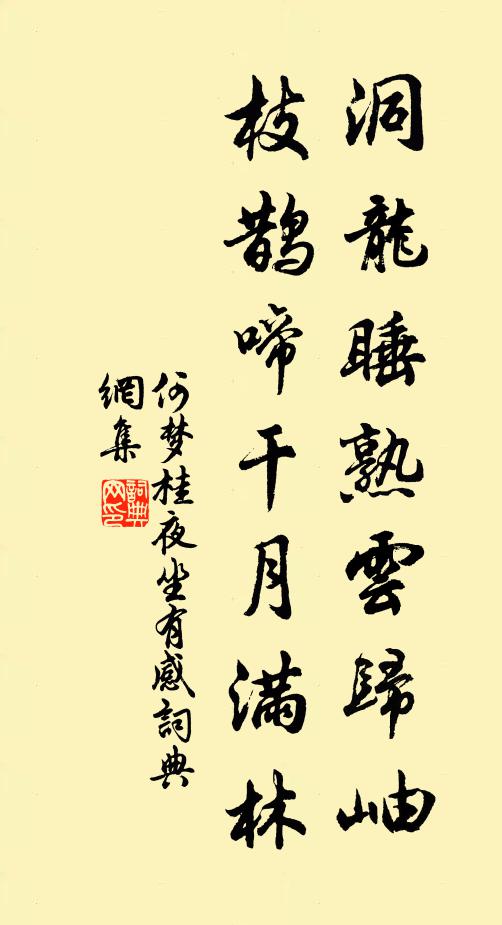 洞龍睡熟雲歸岫
枝鵲啼干月滿林
何梦桂夜坐有感詞典
網集
詞典
网印